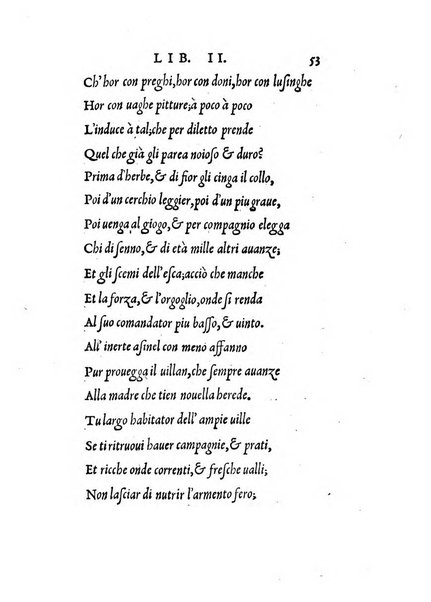 LIB. II. 53
Ch'hor con preghi,hor con doni,hor con luſinghe
Hor con uaghe pitture;à poco à poco
L'induce à tal;che per diletto prende
Quel che già gli parea noioſo,& duro?
Prima d'herbe,& di fior gli cinga il collo,
Poi d'un cerchio leggier,poi d'un piu graue,
Poi uenga al giogo,& per compagnio elegga
Chi di ſenno,& di età mille altri auanze;
Et gli ſcemi dell'eſca;acciò che manche
Et la forza,& l'orgoglio,onde ſi renda
Al ſuo comandator piu baſſo,& uinto.
All'inerte aſinel con menò affanno
Pur prouegga il uillan,che ſempre auanze
Alla madre che tien nouella herede.
Tu largo habitator dell'ampie uille
Se ti ritruoui hauer campagnie,& prati,
Et ricche onde correnti,& freſche ualli;
Non laſciar di nutrir l'armento fero;